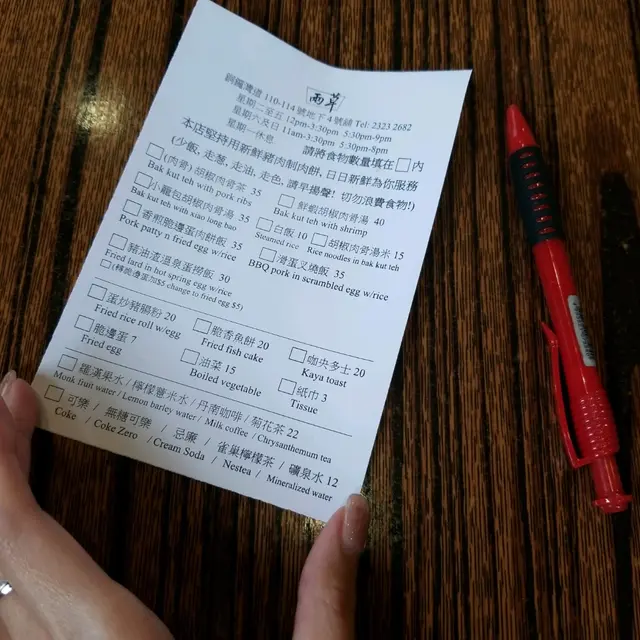 雨草
銅鑼灣道 110-114 號地下 4 號鋪 Tel: 2323 2682
星期二至五 12pm-3:30pm 5:30pm-9pm
星期六及日 11am-3:30pm 5:30pm-8pm
星期一休息
請將食物數量填在 內
本店堅持用新鮮豬肉制肉餅, 日日新鮮為你服務
(少飯, 走葱, 走油, 走色, 請早揚聲! 切勿浪費食物!)
(肉骨) 胡椒肉骨茶 35
Bak kut teh with pork ribs
鮮蝦胡椒肉骨湯 40
Bak kut teh with shrimp
小籠包胡椒肉骨湯 35
Bak kut teh with xiao long bao
白飯 10
Steamed rice
胡椒肉骨湯米 15
Rice noodles in bak kut teh
香煎脆邊蛋肉餅飯 35
Pork patty n fried egg w/rice
滑蛋叉燒飯 35
BBQ pork in scrambled egg w/rice
豬油渣溫泉蛋撈飯 30
Fried lard in hot spring egg w/rice
(轉脆邊蛋加$5 change to fried egg $5)
蛋炒豬腸粉 20
Fried rice roll w/egg
脆香魚餅 20
Fried fish cake
咖央多士 20
Kaya toast
脆邊蛋 7
Fried egg
油菜 15
Boiled vegetable
紙巾 3
Tissue
羅漢果水 / 檸檬薏米水 / 丹南咖啡 / 菊花茶 22
Monk fruit water / Lemon barley water / Milk coffee / Chrysanthemum tea
可樂 / 無糖可樂 / 忌廉 / 雀巢檸檬茶 / 礦泉水 12
Coke / Coke Zero / Cream Soda / Nestea / Mineralized water